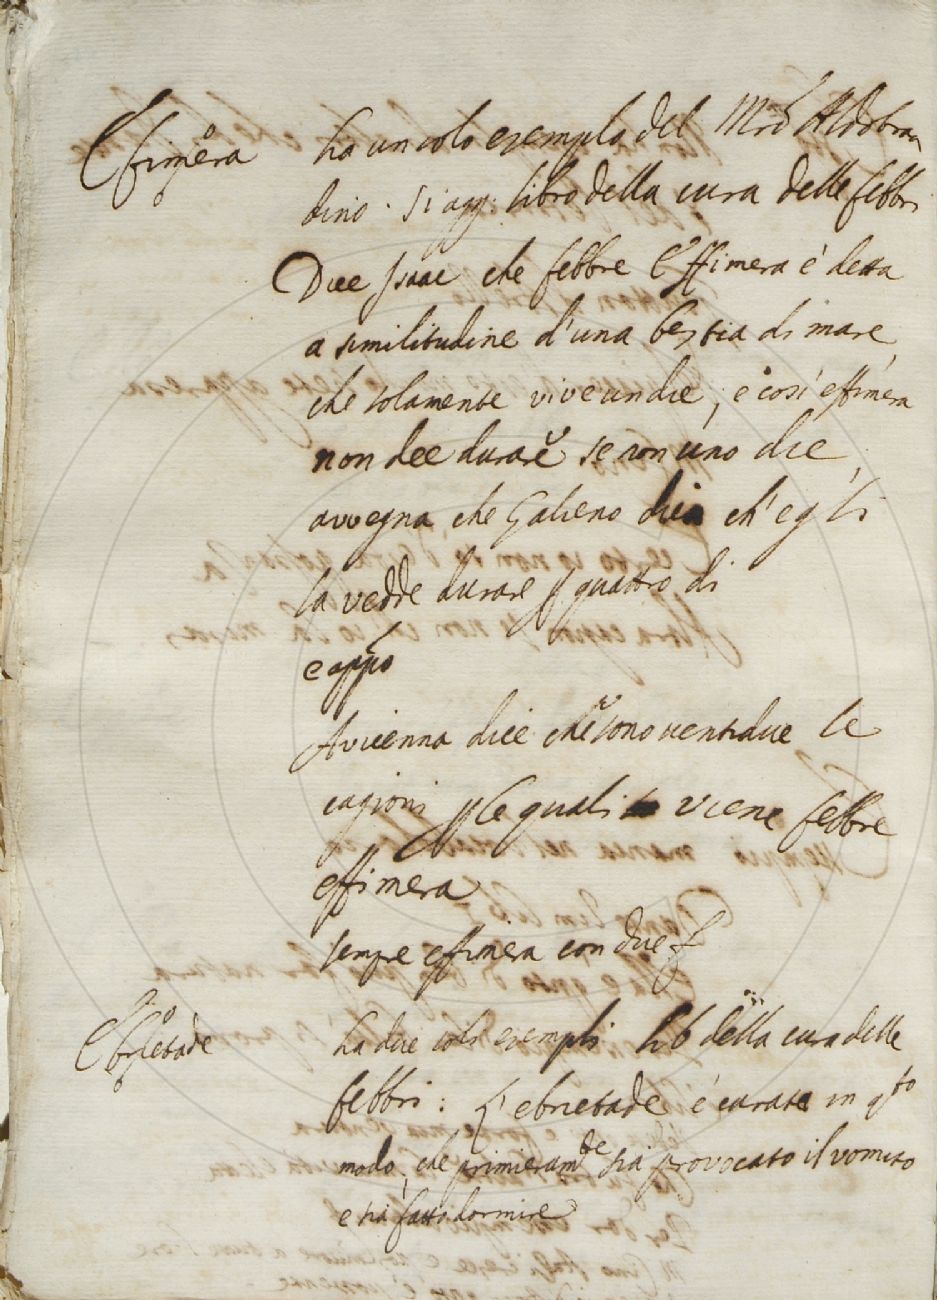 Efimera ha un solo esempio del Mrõ Aldobran
dino. Si agg: libro della cura delle febbri
Dice Isaac che febbre Effimera è detta
a similitudine d'una bestia di mare,
che solamente vive un die, e così effimera
non dee durare se non uno die,
avvegna che Galieno dica ch'egli
la vedde durare p quattro di
e appõ
Avicenna dice che sono ventidue le
cagioni p le quali viene febbre
effimera
sempre effimera con due f
Ebrietade ha due soli esempli lib della cura delle
febbri: L'ebrietade è curata in qto
modo, che primieramte sia provocato il vomito
e sia fatto dormire